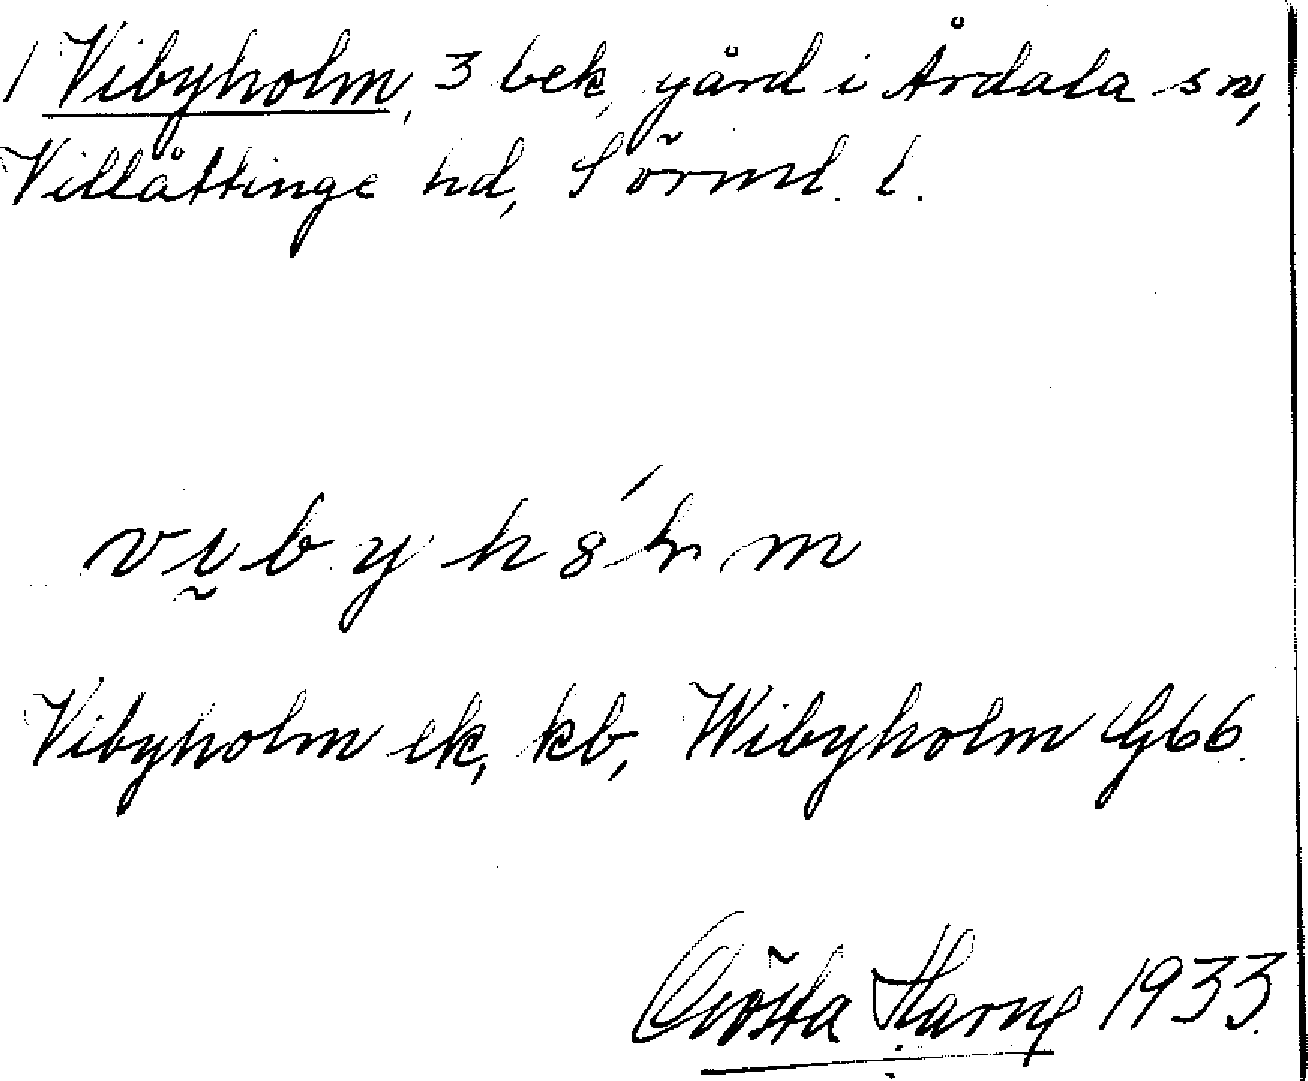 1 Vibyholm, 3 bek, gård i Årdala sn,
Villåttinge hd, Sörml. l.
Vibyholm ek, kb, Wibyholm G66.
Gösta 1933.